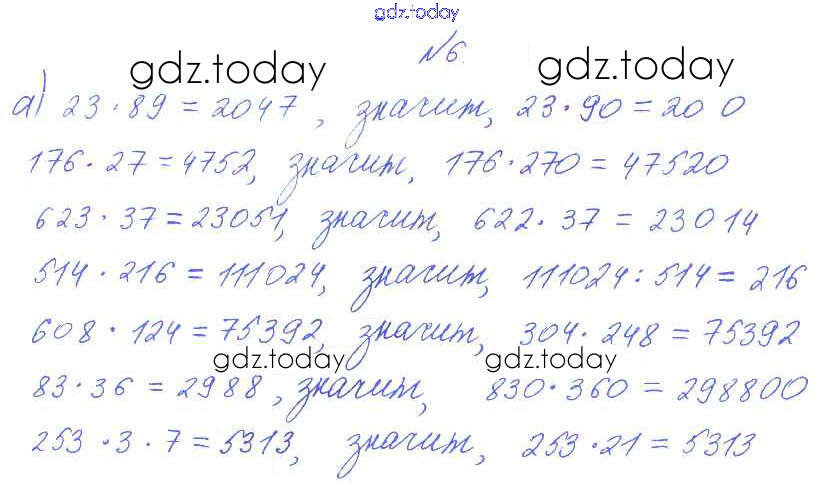 gdz.today
№6.
gdz.today gdz.today
а) 23·89=2047, значит, 23·90=20 0
176·27=4752, значит, 176·270=47520
623·37=23051, значит, 622·37=23014
514·216=111024, значит, 111024:514=216
608·124=75392, значит, 304·248=75392
gdz.today gdz.today
83·36=2988, значит, 830·360=298800
253·3·7=5313, значит, 253·21=5313